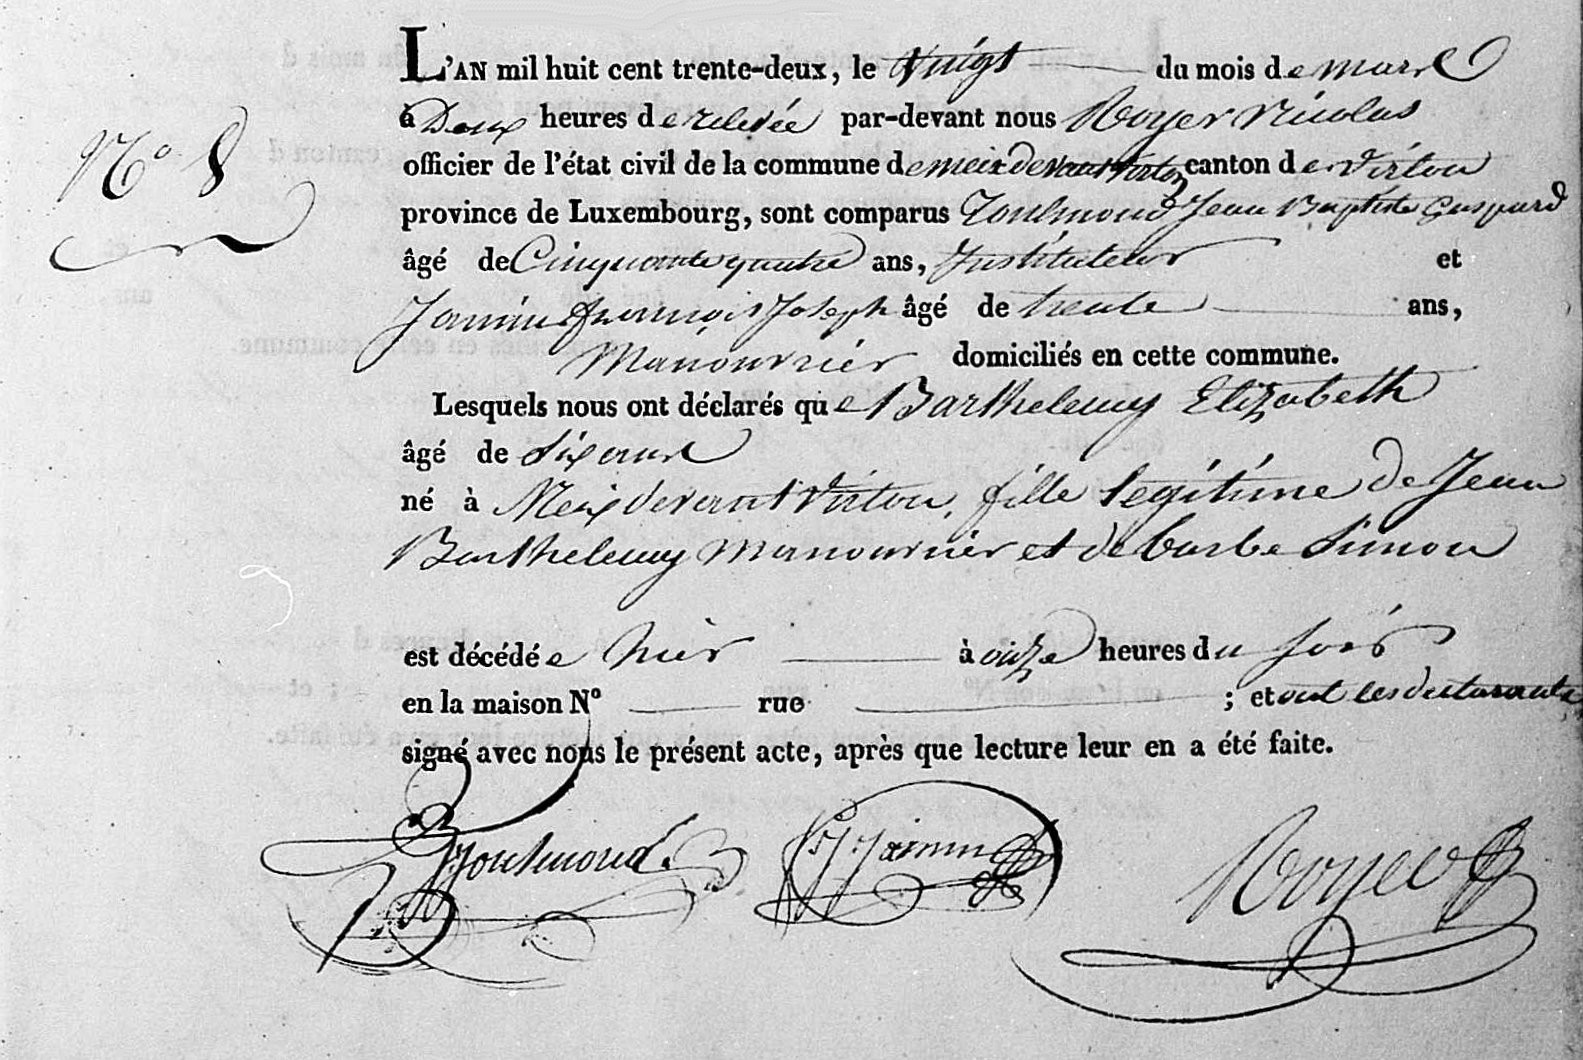 L'AN mil huit cent trente-deux, le vingt du mois de mars
N° 8
à Deux heures de relevée par-devant nous Royer Nicolas
officier de l'état civil de la commune de meix devant virton canton de virton
province de Luxembourg, sont comparus Toulmond Jean Baptiste Gaspard
âgé de Cinquante quatre ans, Instituteur et
Jamin francois Joseph âgé de trente ans,
Manouvrier domiciliés en cette commune.
Lesquels nous ont déclarés que Barthelemy Elizabeth
âgé de Six ans
né à Meix devant Virton, fille legitime de Jean
Barthelemy manouvrier et de barbe Simon
est décédée hier à onze heures du soir
en la maison N° rue ; et ont les declarants
signé avec nous le présent acte, après que lecture leur en a été faite.
Toulmond. Jamin Royer